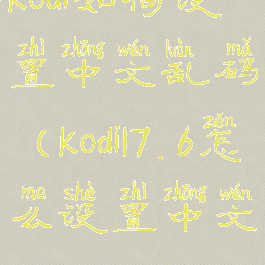 kodi如何设
zhì zhōng wén luàn mǎ
置中文乱码
zěn
(kodi17.6怎
me shè zhì zhōng wén
么设置中文